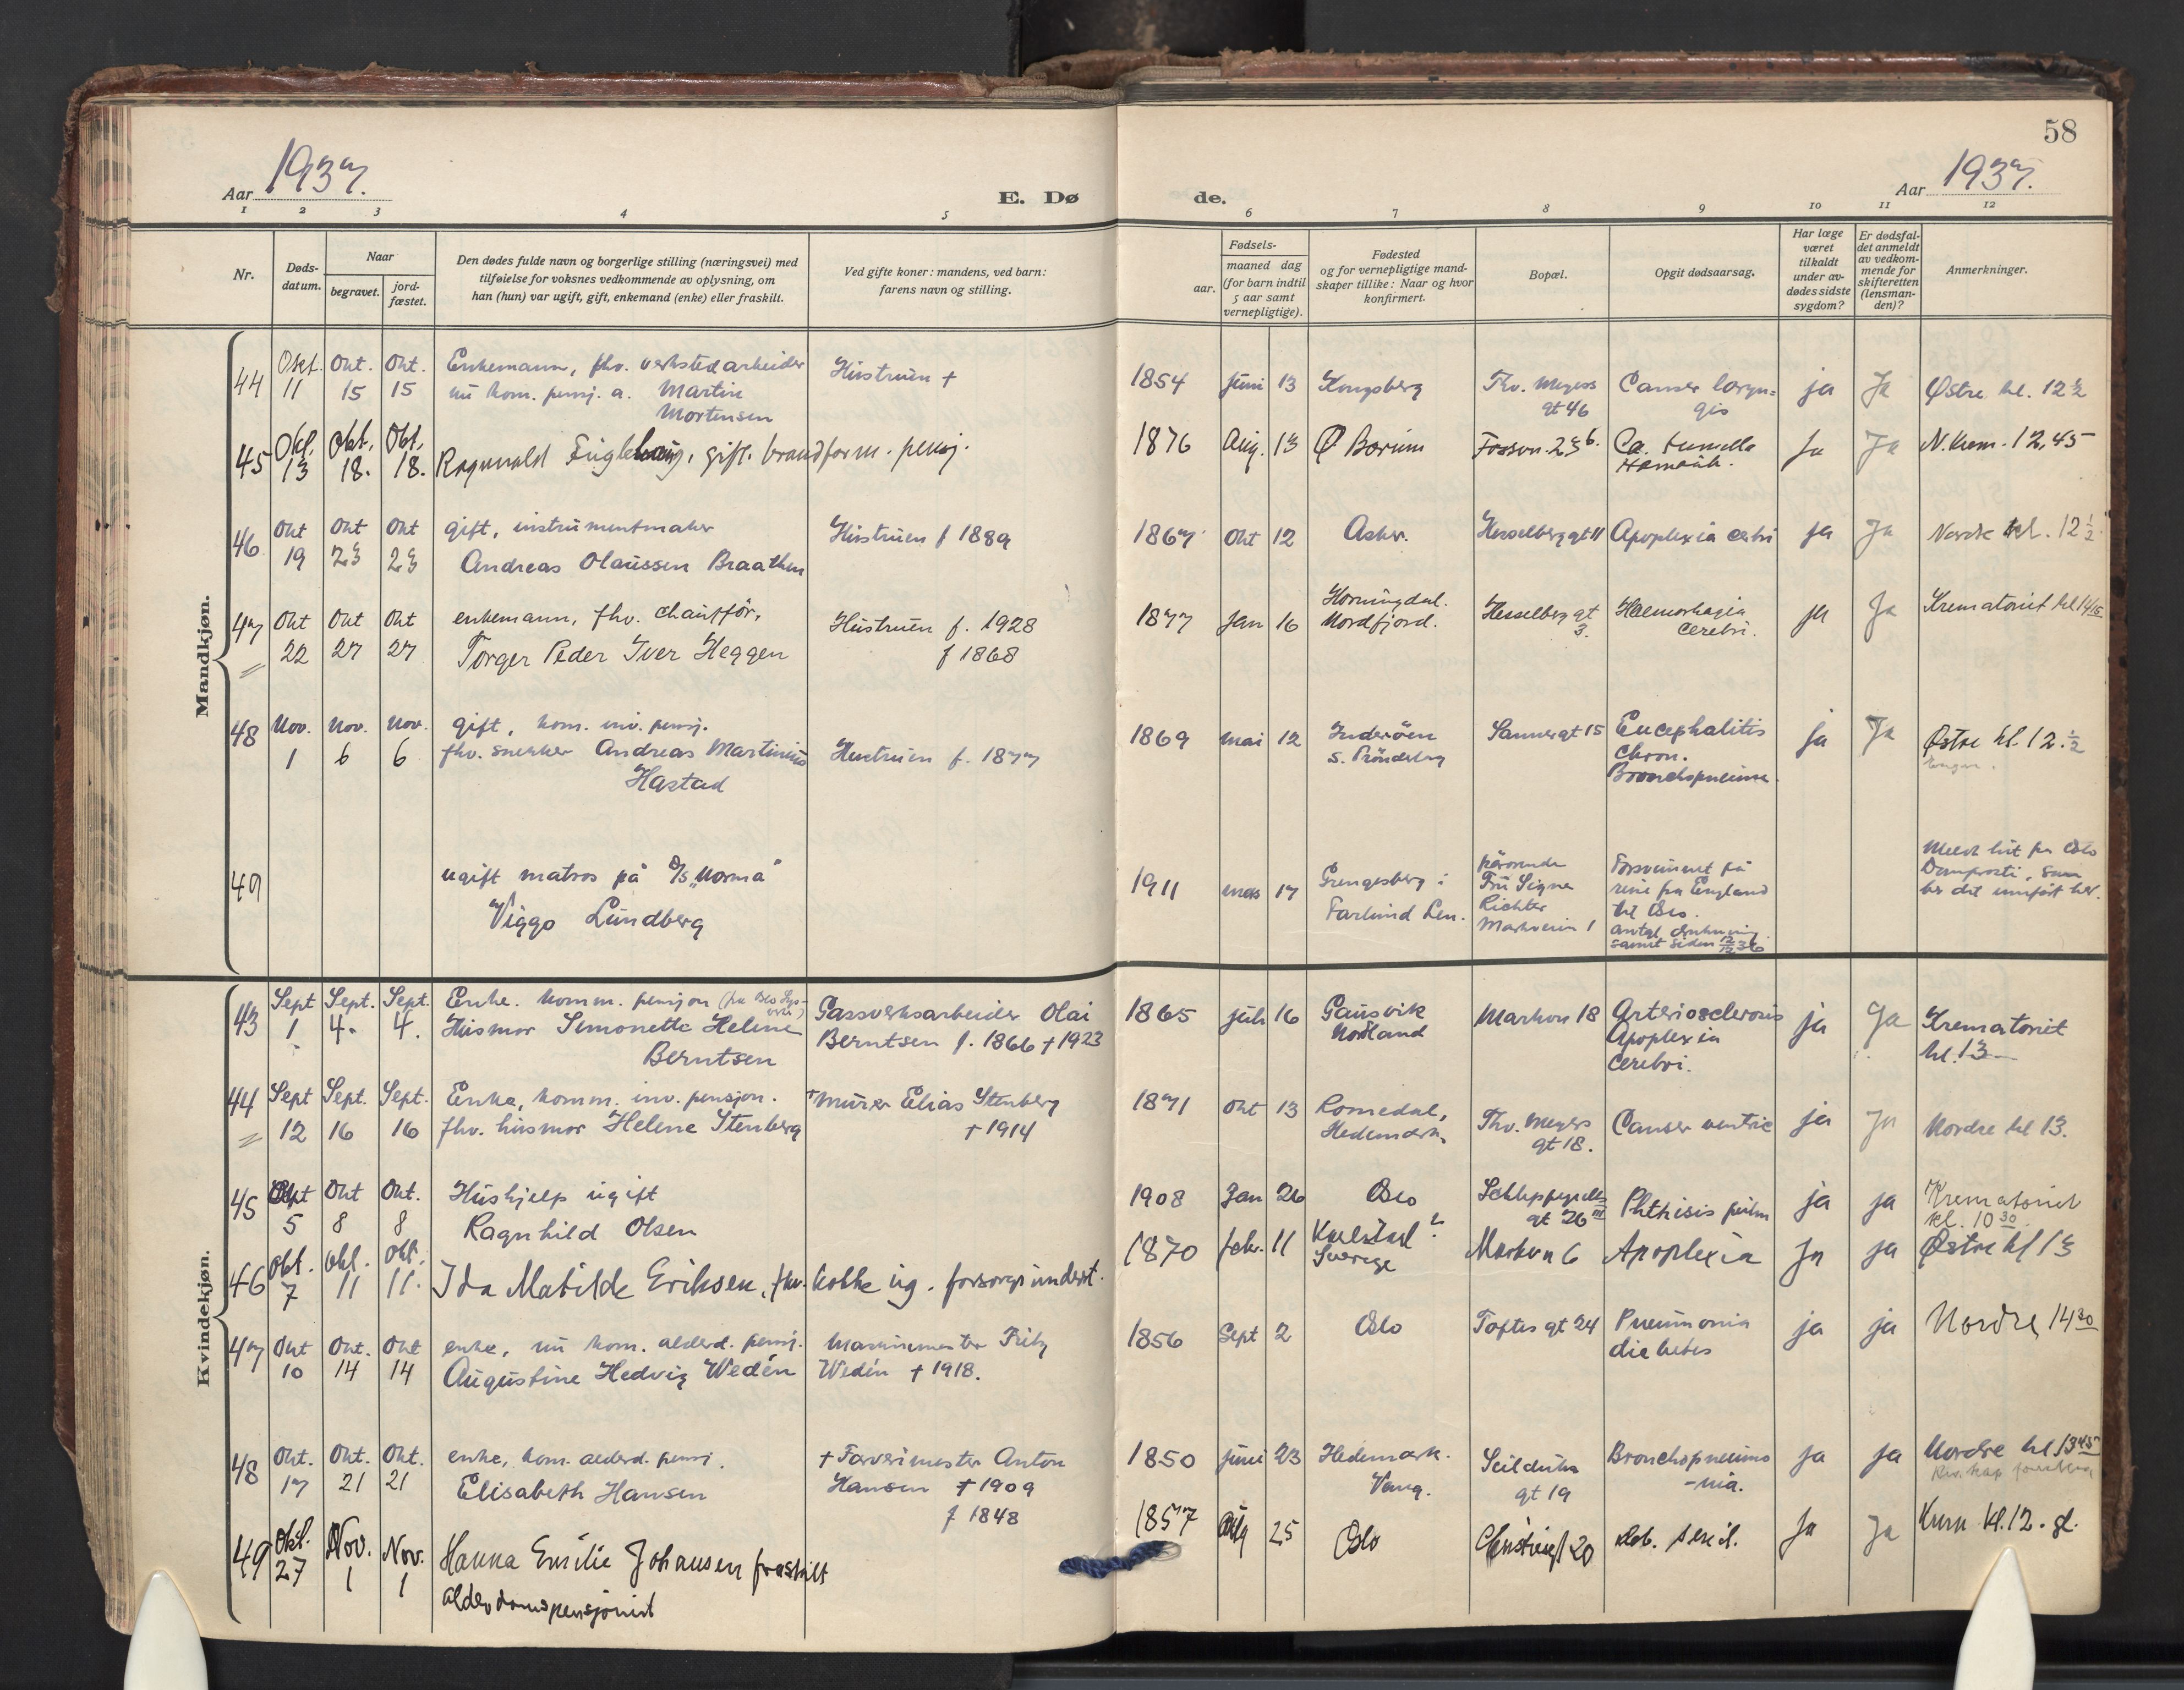 58
Aar 1937.
E. Dø
de.
Aar 1937.
1 2 3 4 5 6 7 8 9 10 11 12
Nr.
Døds-
datum.
Naar
begravet.
jord-
fæstet.
Den dødes fulde navn og borgerlige stilling (næringsvei) med
tilføielse for voksnes vedkommende av oplysning, om
han (hun) var ugift, gift, enkemand (enke) eller fraskilt.
Ved gifte koner: mandens, ved barn:
farens navn og stilling.
Fødsels-
aar.
maaned dag
(for barn indtil
5 aar samt
vernepligtige).
Fødested
og for vernepligtige mand-
skaper tillike: Naar og hvor
konfirmert.
Bopæl.
Opgit dødsaarsag.
Har læge
været
tilkaldt
under av-
dødes sidste
sygdom?
Er dødsfal-
det anmeldt
av vedkom-
mende for
skifteretten
(lensman-
den)?
Anmerkninger.
Mandkjøn.
44 Okt. 11 Okt. 15 Okt. 15
Enkemann, fhv. verkstedarbeider
nu kom. pensj. a. Martin
Mortensen
Hustruen +
1854 juni 13 Kongsberg
Thv. Meyers
gt 46
Canser laryn=
gis
ja Ja Østre kl. 12½
45 Okt. 13 Okt. 18. Okt. 18.
Ragnvald Fuglehaug, gift. brandform. pensj.
1876 Aug. 13 Ø Bærum
Fossvn. 23 b.
Ja Ja N. Krem. 12,45
46 Okt 19 Okt 23 Okt 23
gift, instrumentmaker
Andreas Olaussen Braathen
Hustruen f 1889
1867 Okt 12 Asker.
Hesselberggt 11
Apoplexia cerbri
ja Ja Nordre kl. 12½
47 Okt 22 Okt 27 Okt 27
enkemann, fhv. chauffør,
Torger Peder Iver Heggen
Hustruen f. 1928
f 1868
1877 Jan 16
Horningdal.
Nordfjord.
Hesselberg gt
3.
Haemorhagia
cerebri.
ja Ja Krematoriet kl 14 15
48 Nov. 1 Nov. 6 Nov. 6
gift, kom. inv. pensj.
fhv. snekker Andreas Martinius
Hastad
Hustruen f. 1877
1869 mai 12
Inderöen
S. Tröndelag
Sannergt 15
Encephalitis
chron.
Bronchopneum.
ja Ja Østre kl 12.½
49
ugift matros på D/S "Norma"
Viggo Lundberg
1911 mars 17
Grengesberg i
pårørende
Fru Signe
Richter
Markveien 1
Forsvunnet på
reise fra England
til Oslo.
antgl. drukning
savnet siden 12/12 36
Meldt hit fra Oslo
Domprosti, som
ber det innført her.
Kvindekjøn.
43 Sept 1 Sept. 4. Sept. 4.
Enke. komm. pensjon
Husmor Simonette Helene
Berntsen
Gassverksarbeider Olai
Berntsen f. 1866 + 1923
1865 juli 16
Gausvik
Nordland
Markvn 18
Arteriosclerosis
Apoplexia
Cerebri.
ja Ja
Krematoriet
kl. 13
44 Sept 12 Sept. 16 Sept. 16
Enke, komm. inv. pensjon.
fhv. husmor Helene Stenberg
+ murer Elias Stenberg
+ 1914
1871 Okt 13
Romedal,
Hedemark.
Thv. Meyers
gt 18.
Canser ventric
ja Ja Nordre kl 13.
45 Okt 5 Okt 8 Okt. 8
Hushjelp ugift
Ragnhild Olsen
1908 Jan 26 Oslo
Schleppegrells
gt 26 III
Phthisis pulm
ja ja
Krematoriet
kl. 10 30
46 Okt. 7 Okt. 11 Okt. 11.
Ida Matilde Eriksen, fhv. kokke ug. forsorgsunderst.
1870 febr. 11
Karlstad?
Sverige
Markvn 6
Apoplexia
Ja ja Østre kl 13
47 Okt 10 Okt. 14 Okt 14
enke, nu kom. alderd. pensj.
Augustine Hedvig Wedén
Maskinmester Fritz
Wedén + 1918.
1856 Sept 2 Oslo
Toftes gt 24
Pneumonia
diebetes
ja ja Nordre 14 30
48 Okt. 17 Okt. 21 Okt. 21
enke, kom. alderd. pensj.
Elisabeth Hansen
+ Farverimester Anton
Hansen + 1909
f 1848
1850 juni 23
Hedemark.
Vang.
Seilduks
gt 19
Bronchopneumo
-nia.
ja ja Nordre kl 13 45
49 Okt. 27 Nov. 1 Nov. 1
Hanna Emilie Johansen fraskilt
alderdomspensjonist
1857 Aug 25 Oslo
Christiesgt 20
Deb. senil.
Ja Ja Krem kl. 12. gl.